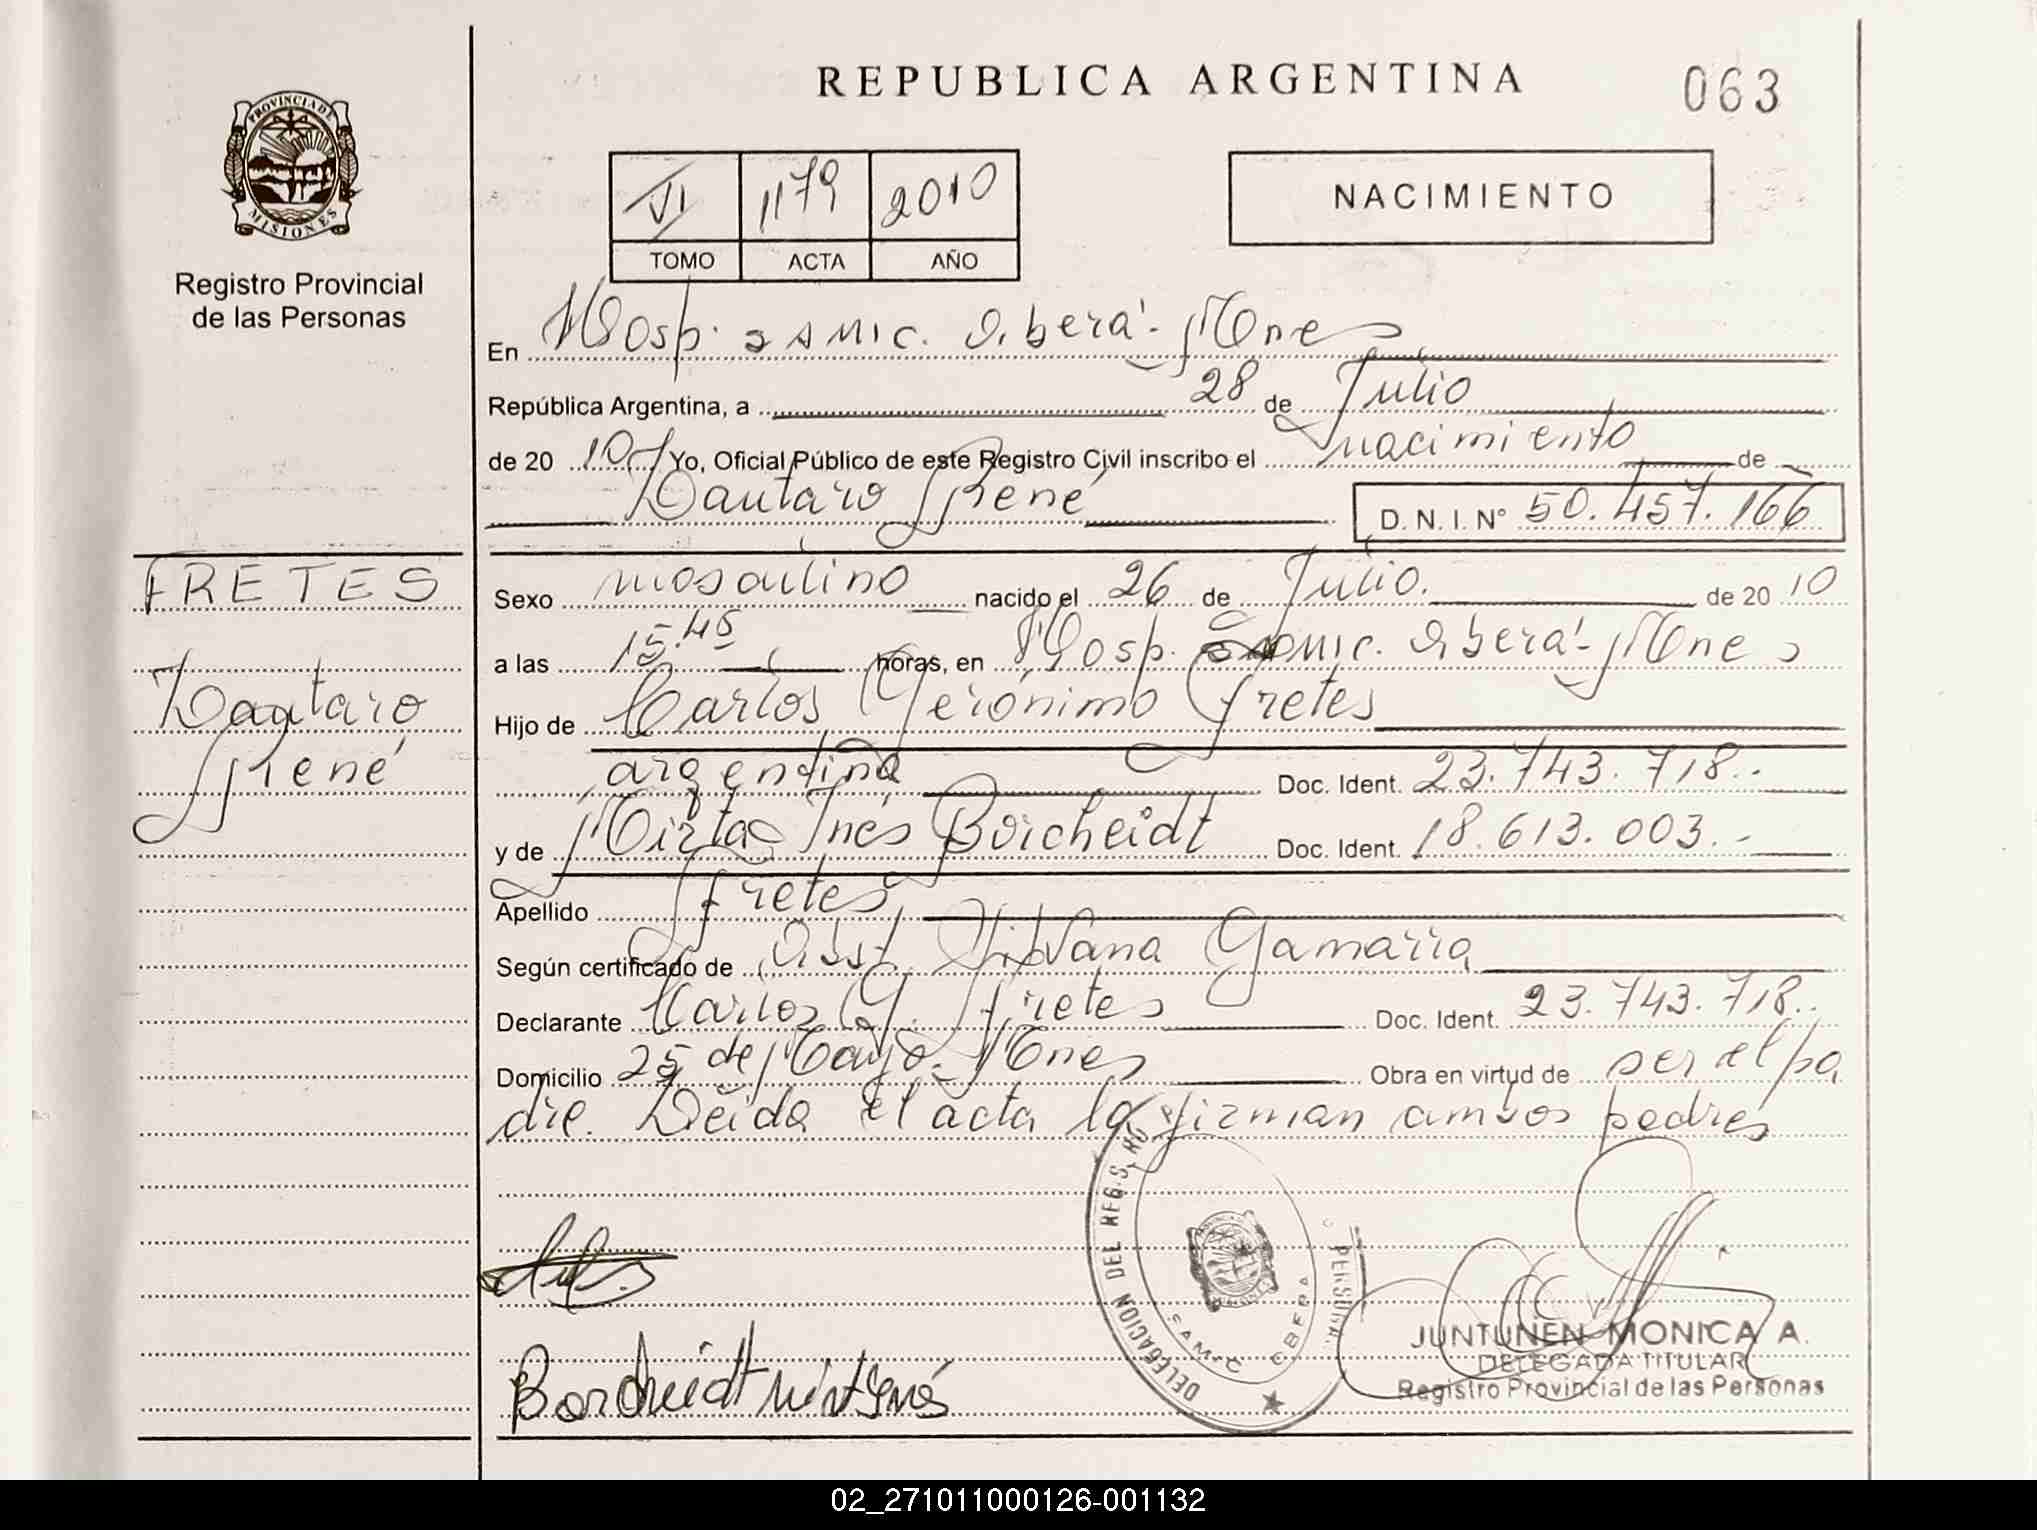 REPUBLICA ARGENTINA
063
PROVINCIA DE
MISIONES
Registro Provincial
de las Personas
VI 1179 2010
TOMO ACTA AÑO
NACIMIENTO
En Hosp. SAMIC. Oberá - Mnes
República Argentina, a 28 de Julio
de 20 10 Yo, Oficial Público de este Registro Civil inscribo el nacimiento de
Lautaro René
D. N. I. N° 50.457.166
FRETES
Lautaro
René
Sexo masculino nacido el 26 de Julio. de 20 10
a las 15.45 horas, en Hosp. SAMIC. Oberá - Mnes
Hijo de Carlos Gerónimo Fretes
argentina Doc. Ident. 23.743.718.
y de Mirta Inés Borcheidt Doc. Ident. 18.613.003.-
Apellido Fretes
Según certificado de Obst. Silvana Gamarra
Declarante Carlos G. Fretes Doc. Ident. 23.743.718.
Domicilio 25 de Mayo. Mnes Obra en virtud de ser el pa
dre. Leída el acta la firman ambos padres
DELEGACION DEL REG.
SAMIC OBERA
Borcheidt Mirta Inés
JUNTUNEN MONICA A.
DELEGADA TITULAR
Registro Provincial de las Personas
02_271011000126-001132